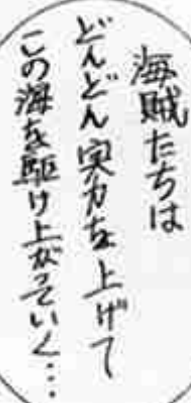 海賊たちは
どんどん実力を上げて
この海を駆け上がっていく…